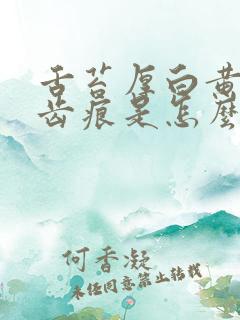 舌苔厚白黄
齿痕是怎么
何香凝
未经同意禁止转载